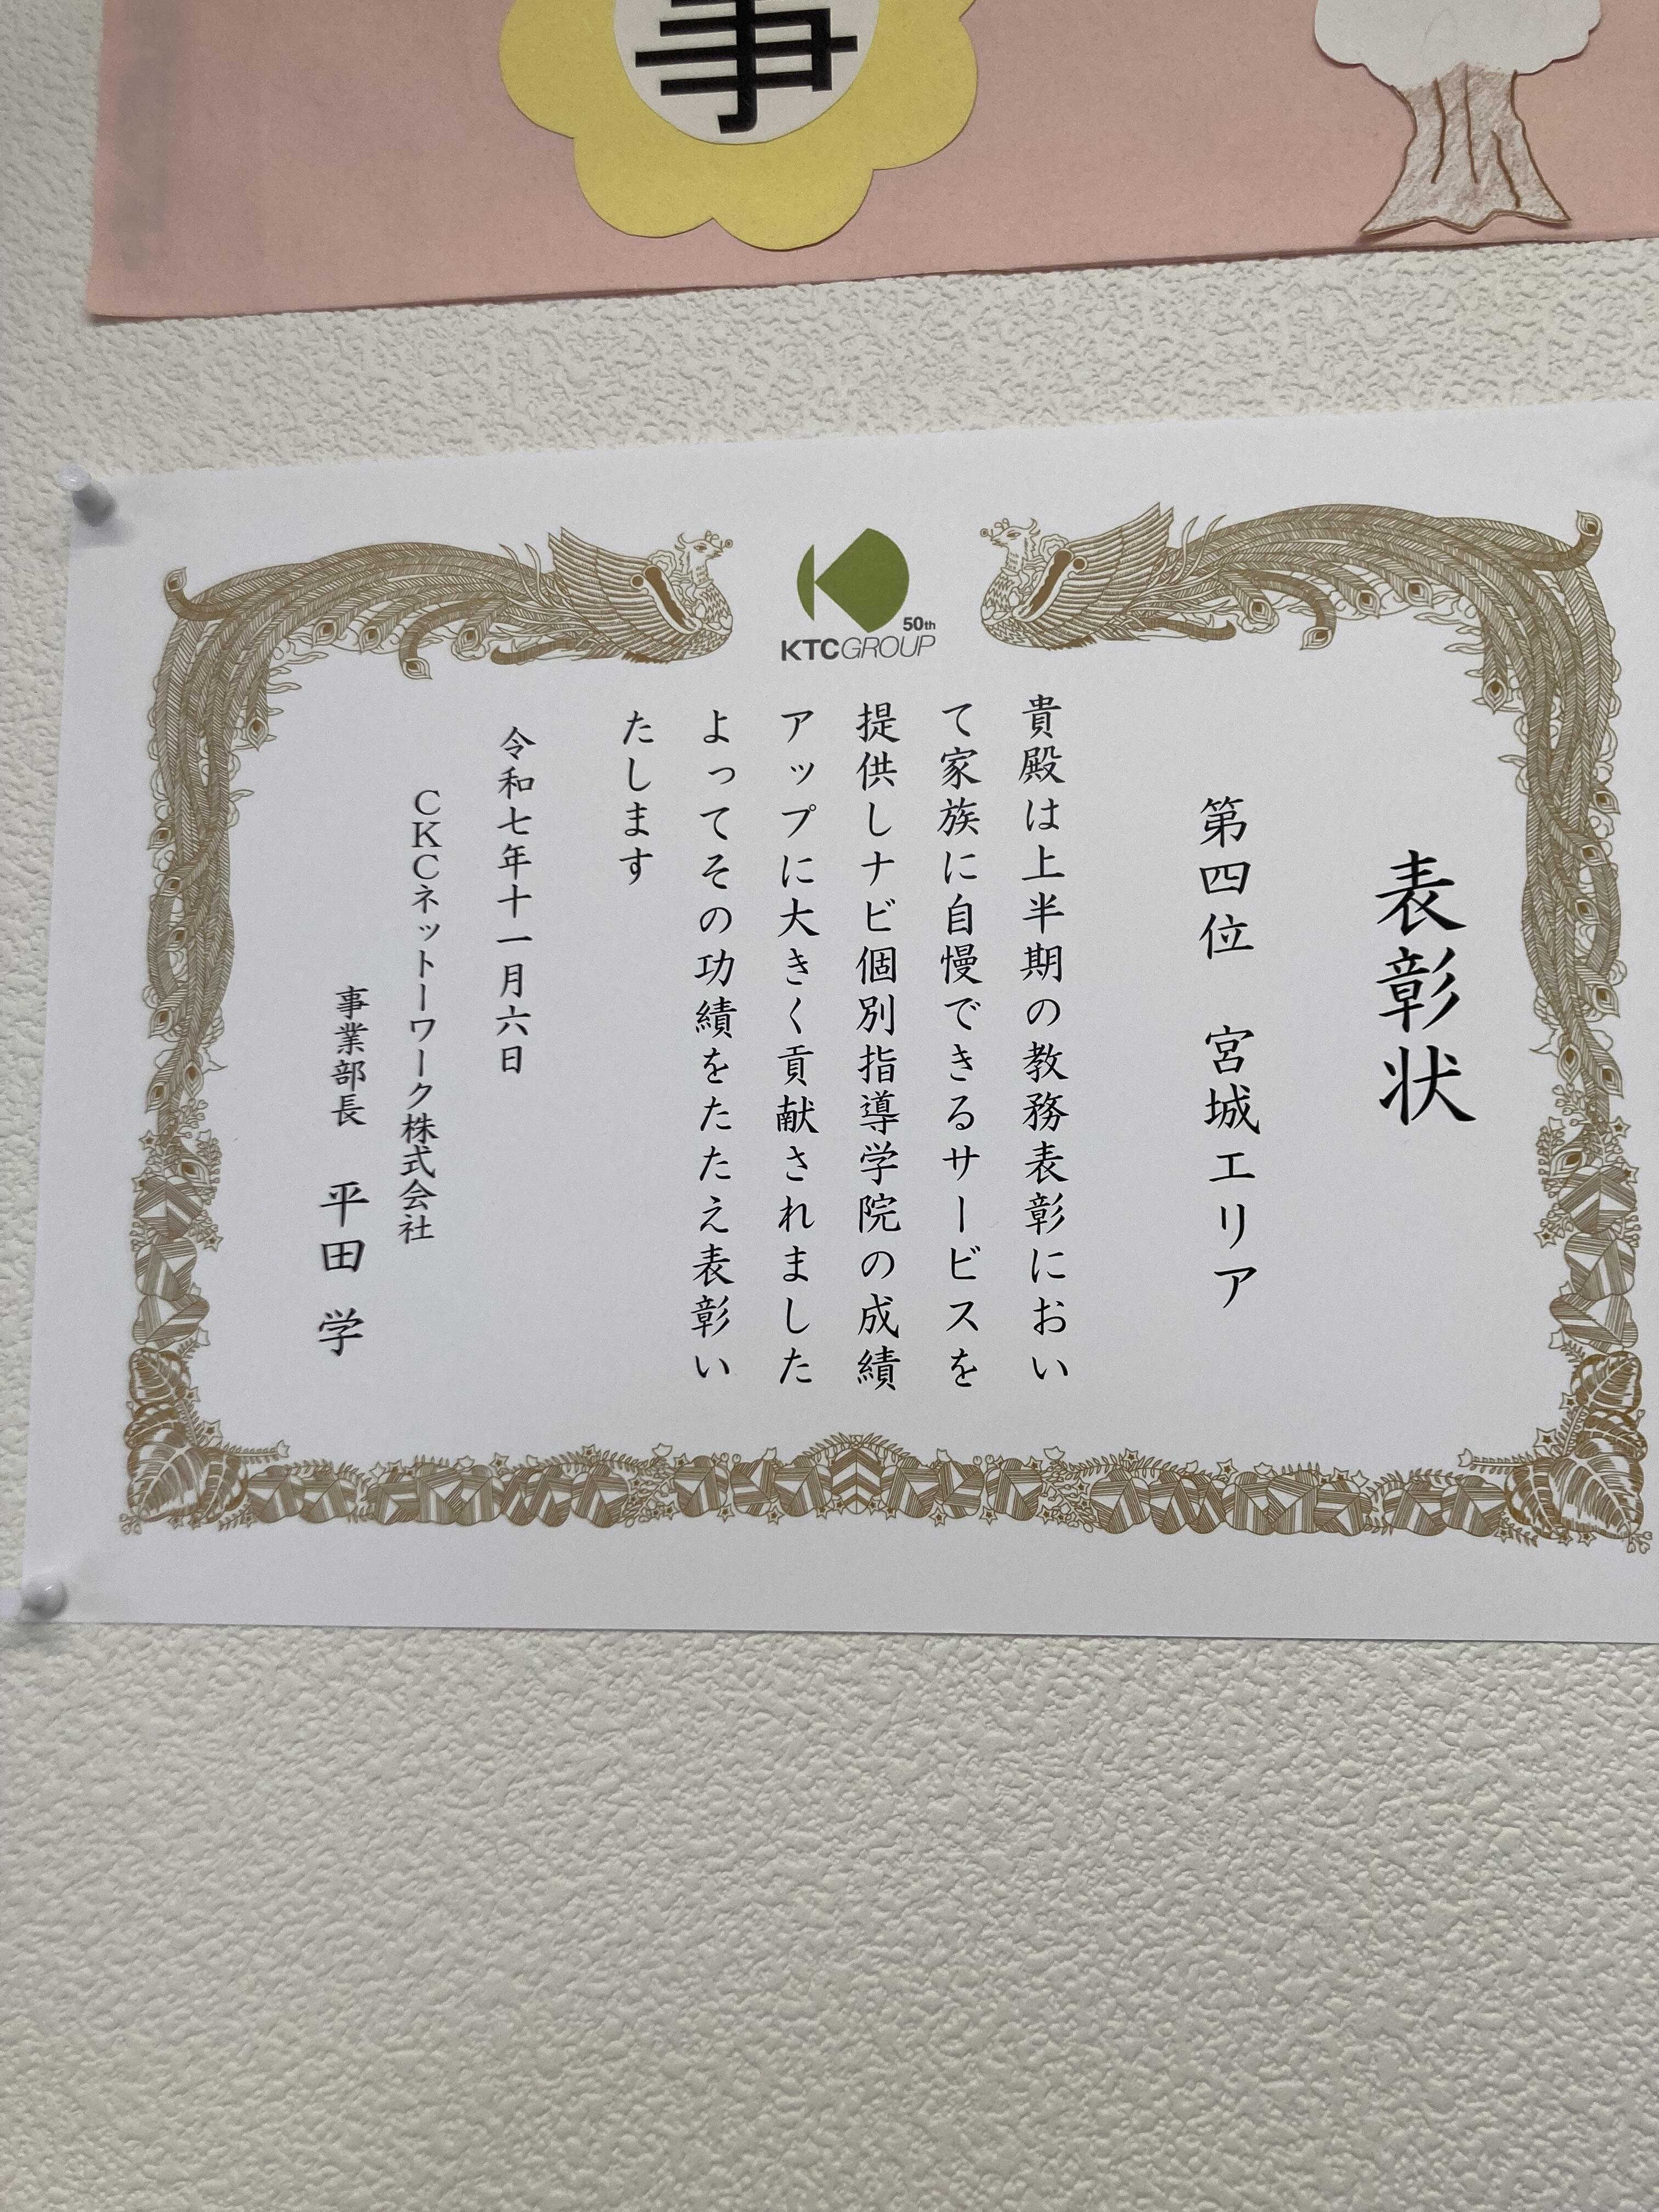 事
50th
KTCGROUP
表彰状
第四位　宮城エリア
貴殿は上半期の教務表彰におい
て家族に自慢できるサービスを
提供しナビ個別指導学院の成績
アップに大きく貢献されました
よってその功績をたたえ表彰い
たします
令和七年十一月六日
CKCネットーワーク株式会社
事業部長　平田　学